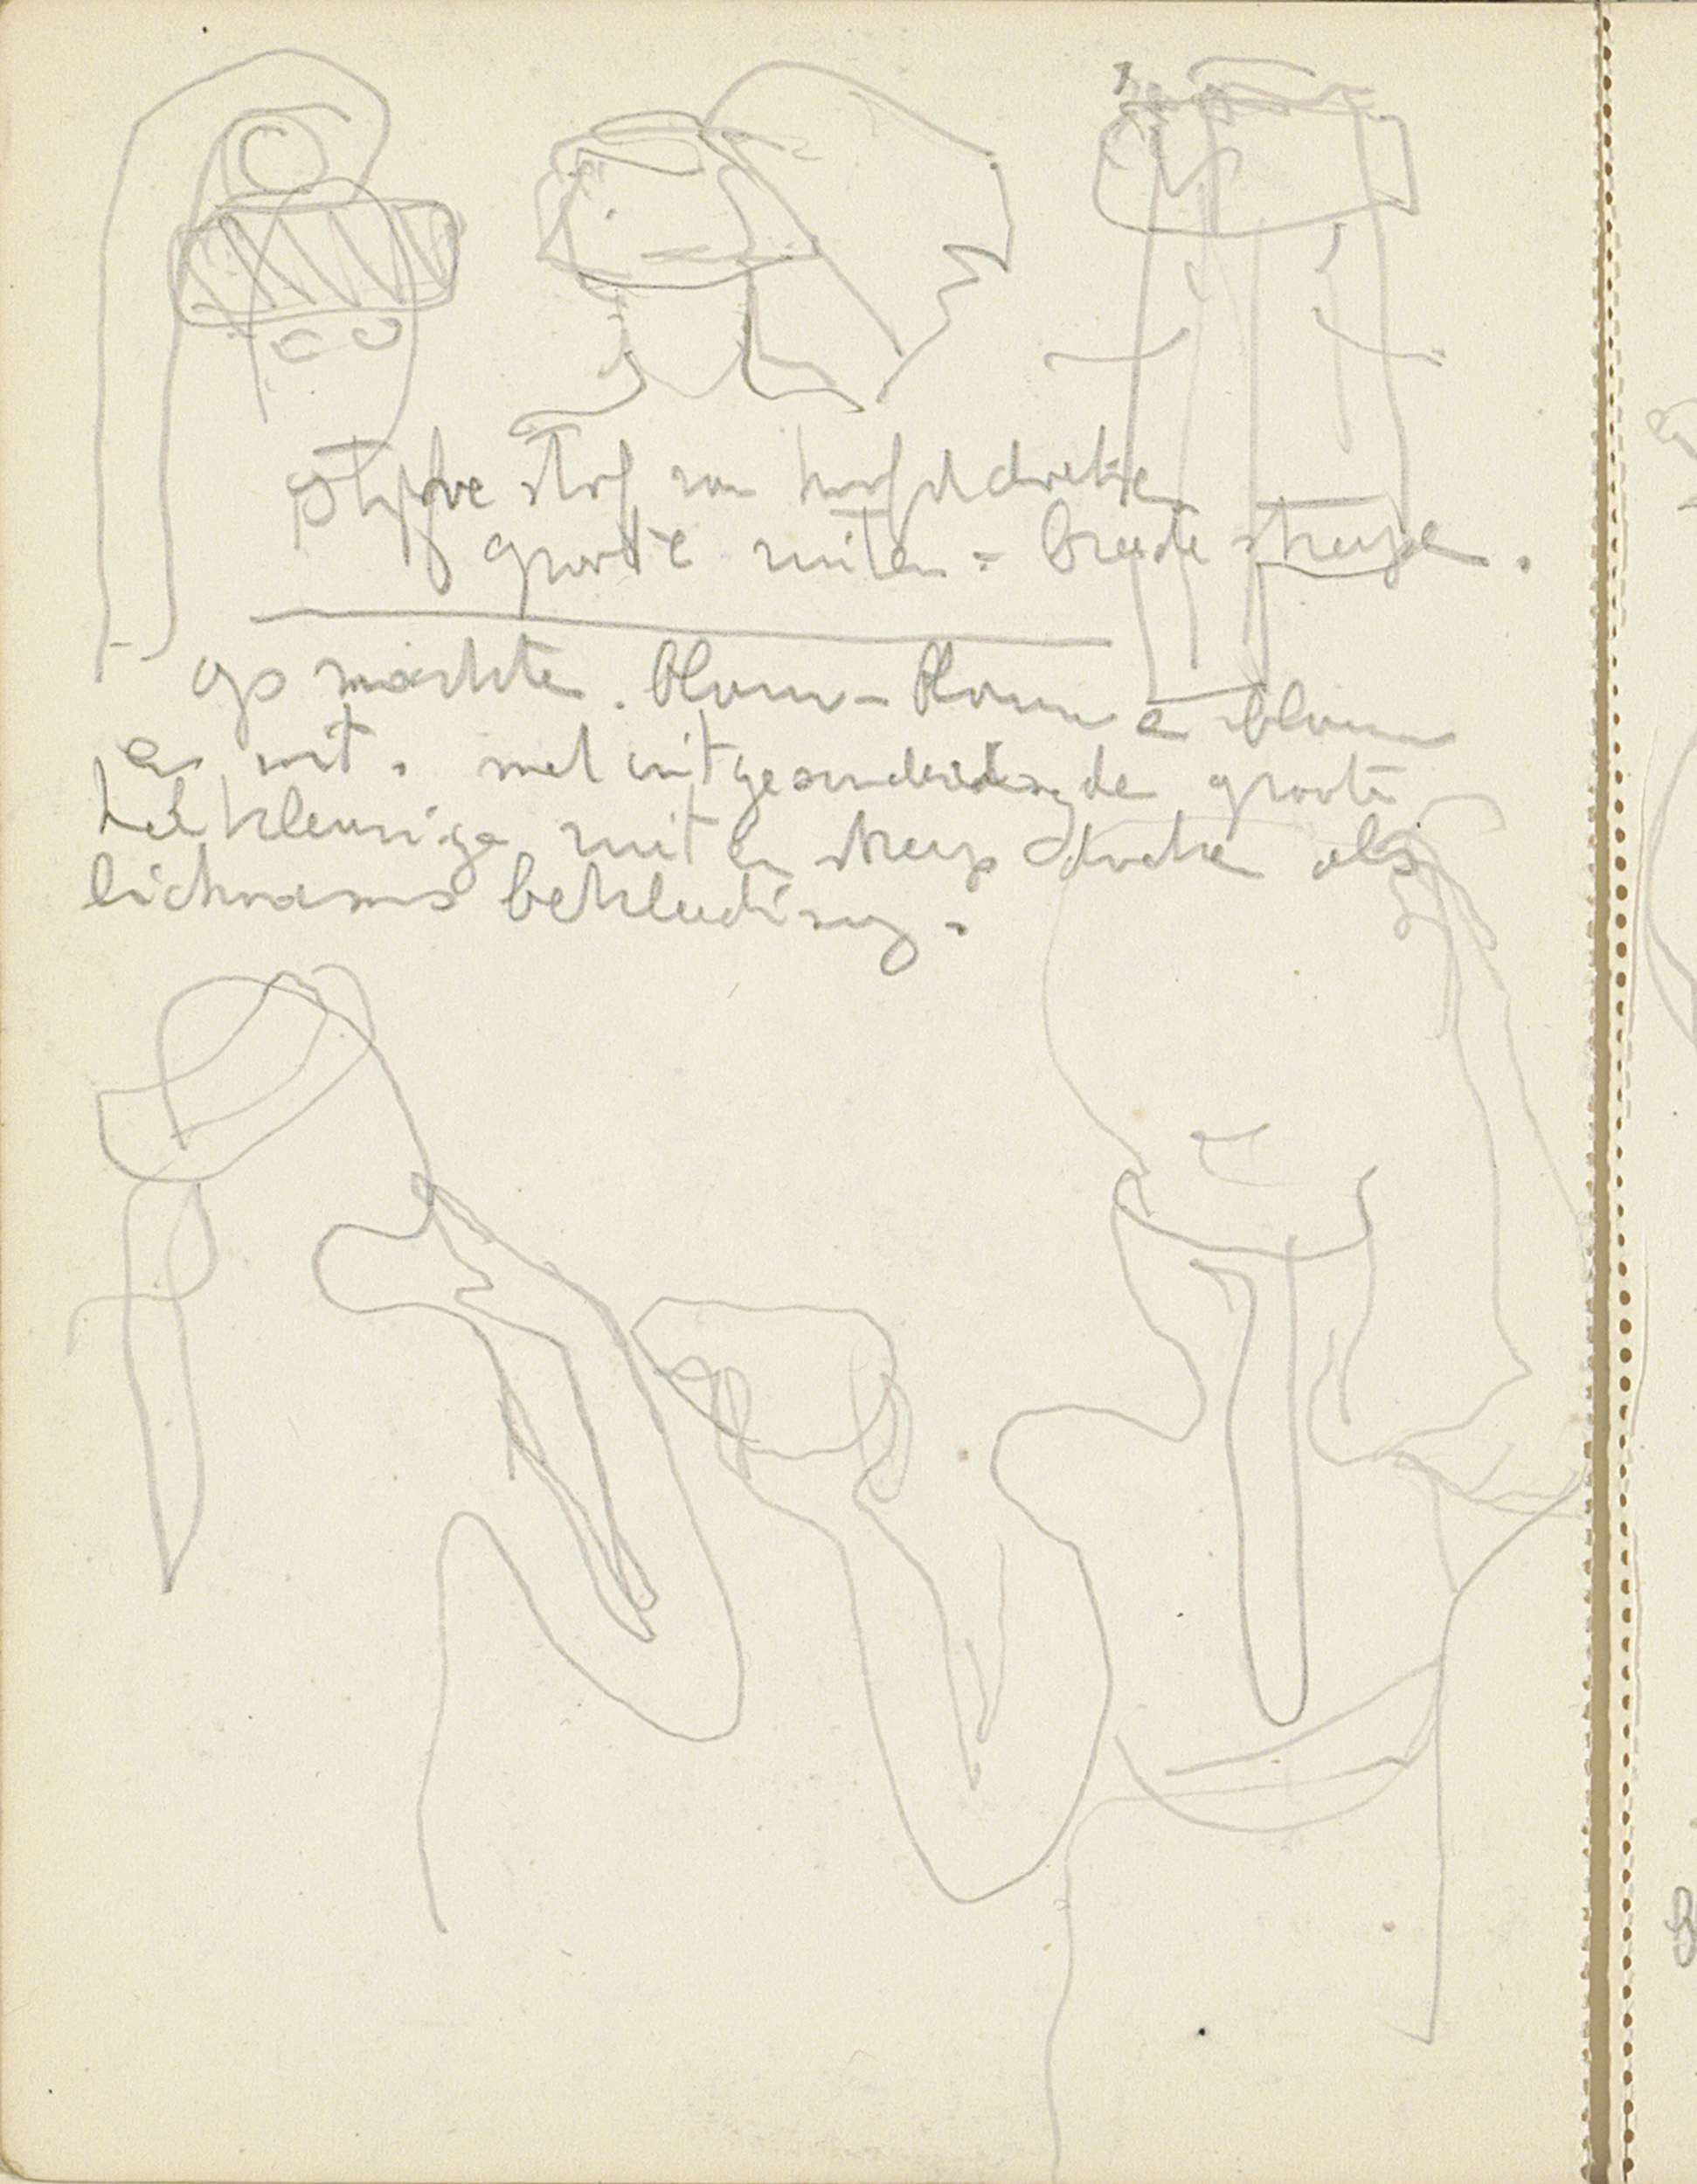 stijfve stof van hoofddoeke
groote ruiten = breede strepe.
op markte. blauw - blauw e blauw
en wit. met uitgezonderd de groote
helkleurige ruit en streep doeke als
lichaams bekleeding.